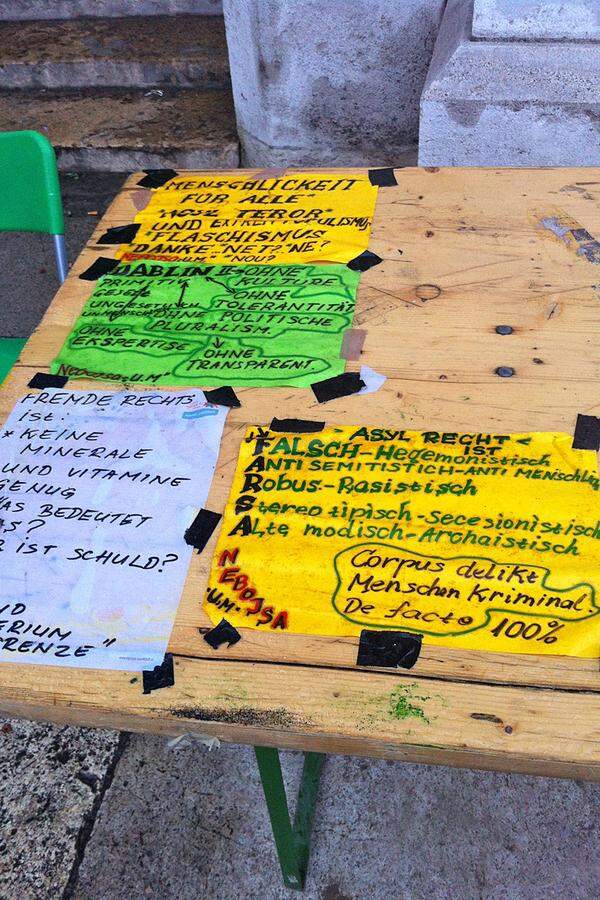 MENSCHLICKEIT
FÜR ALLE"
TEROR"
UND
"FLASCHISMUS"
DANKE "NET?" "NE?"
"NOU?"
DABLIN II = OHNE
KULTURE
PRIMITIV
OHNE
TOLERANTITÄT
OHNE POLITISCHE
PLURALISM.
OHNE
EKSPERTISE
OHNE
TRANSPARENT.
FREMDE RECHTS
IST:
* KEINE
MINERALE
UND VITAMINE
GENUG
AS BEDEUTET
S?
R IST SCHULD?
ND
ERIUM
RENZE"
ASYL RECHT
IST
FALSCH-Hegemonistisch
ANTI SEMITISTICH-ANTI MENSCHLI
Robus-Rasistisch
Stereo tipisch-Secesionistisch
Alte modisch-Archaistisch
NEBOJSA
"U.M."
Corpus delikt
Menschen Kriminal.
De facto 100%